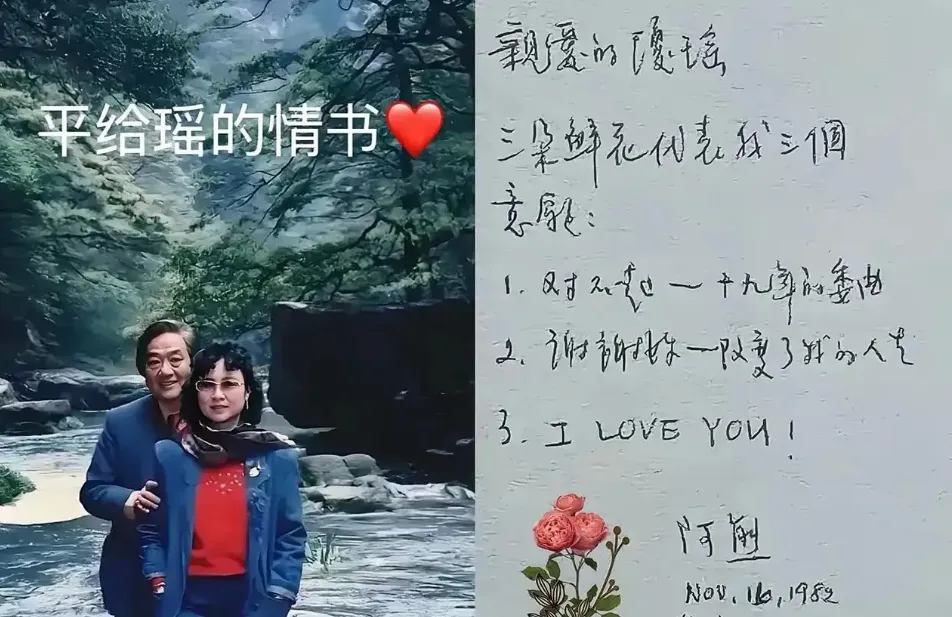 平给瑶的情书❤️
親愛的瓊瑤
三朵鮮花代表我三個
意願：
1. 对不起—十九年的委曲
2. 謝謝妳—改變了我的人生
3. I LOVE YOU!
阿
NOV. 16, 1982